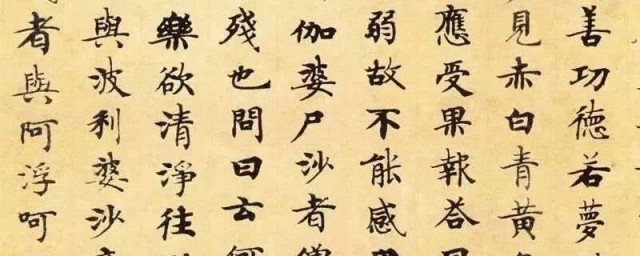 善功徳若夢
見赤白青黄
應受果報荅曰
弱故不能感
伽婆尸沙者僧
殘也問曰云何
樂欲清淨往
與波利婆沙
者與阿浮呵